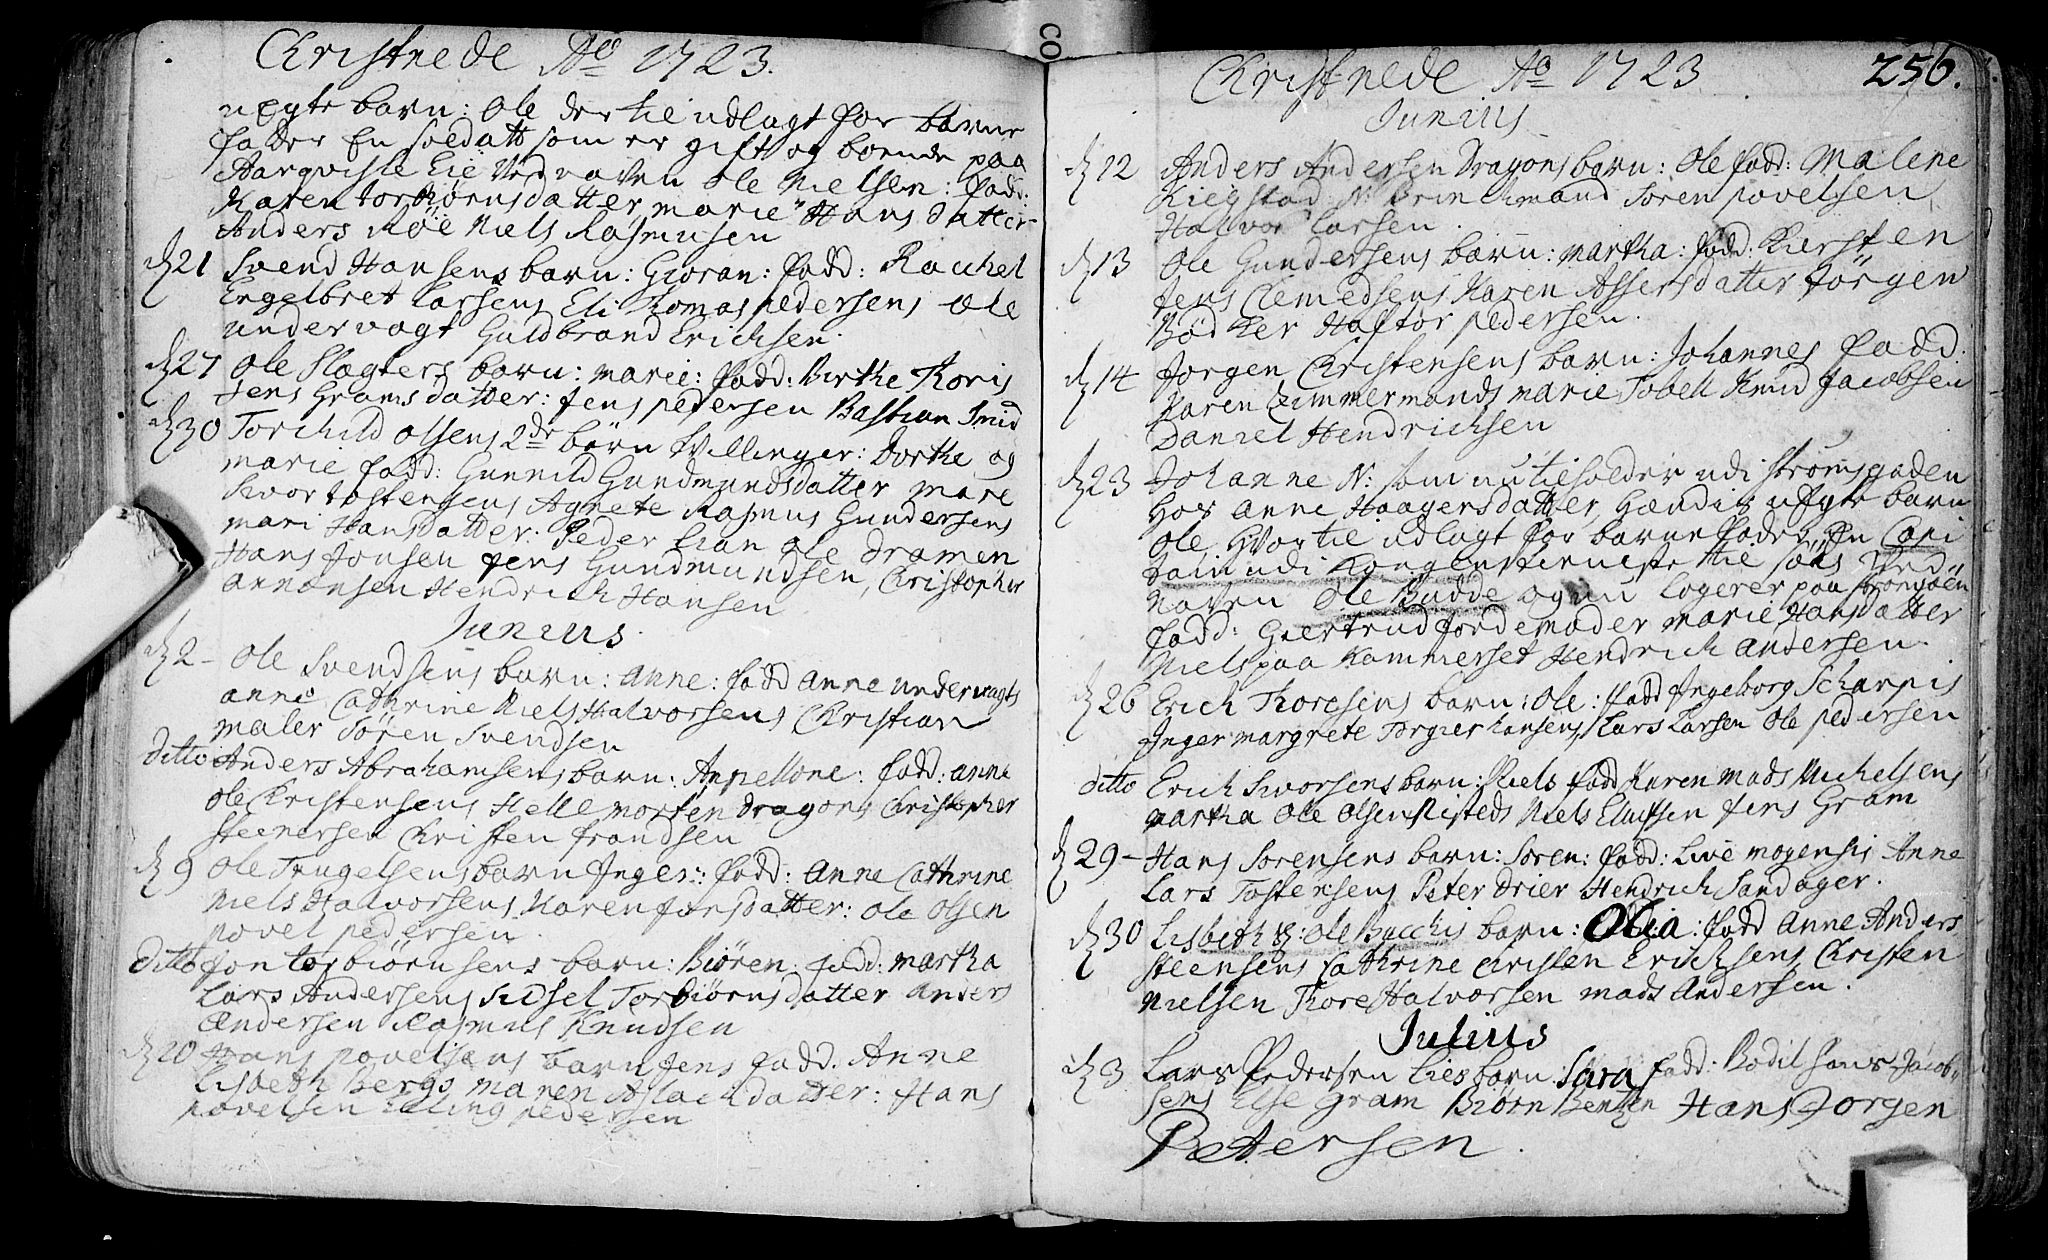 Christnede Ao 1723.
uEgte barn: Ole der til udlagt for barne
fader En soldatt som er gift og boende paa
Hargvisle Eie Ved navn Ole Nielsen: fadd:
Karen torbiørnsdatter marie Hans datter
Anders Röe Niels Rasmusen
d 21 Svend Hansens barn: Gioran: fadd: Rachel
Engelbret Larsens Eli Thomas pedersens Ole
undervagt Guldbrand Ericksen
d 27 Ole Slagters barn: marie: fadd: Birthe Thoris
Jens Grams datter: Jens pedersen Bastian Smid
d 30 Torchild olsens 2de børn tvillinger: Dorthe og
marie fadd: Gunnild Gundmundsdatter mare
Sivor tostensens Agnete Rasmus Gundersens
mari Hansdatter. Peder Lian Ole Dramen
Hans Jonsen Jens Gundmundsen, Christopher
Hendrich Hansen
Junius.
d 2 - Ole Svendsens barn: Anne: fadd Anne undervagts
anne Cathrine Niels Halvorsens Christian
maler Sören Svendsen
ditto Anders Abrahamsens barn: Anpellone: fadd: anne
Ole Christensens Helle morten dragons Christopher
steenersen Christen frandsen
d 9 Ole Trugelsens barn Inger: fadd: Anne Cathrine
Niels Halvorsens Karen Jonsdatter: Ole Olsen
povel pedersen
ditto Jon torbiörnsens barn: Biören: fadd: martha
Lars Andersens Sidsel Torbiörns datter Anders
Andersen Rasmus Knudsen
d 20 Hans povelsens barn Jens fadd. Anne
Lisbeth Bergs maren Aslachdatter: Hans
povelsen Elling pedersen
Christnede Ao 1723 256.
Junius
d 12 Anders Andersen Dragons barn: Ole fadd: Malene
Kiegstad N: Brinchmand Sören povelsen
Halvor Larsen
d 13 Ole Gundersens barn: martha: fadd: Kiersten
Jens Clemedsens Karen Assersdatter Jörgen
Bödker Haftor pedersen.
d 14 Jorgen Christensens barn: Johannes fadd:
Karen Zimmermands marie Tobell Knud Jacobsen
Daniel Hendrichsen
d 23 Johanne N: som nu tilholder udi strømsgaden
hos Anne Haagersdatter, hendis uEgte barn
Ole Hvortil udlagt for barne fader En Capi
tain udi Kongens tieniste til söes Ved
navn Ole Budde og nu Logerer paa Strømsöen
fadd: Giertrud Jordemoder marie Hansdatter
Niels paa Kammerset Hendrich Andersen.
d 26 Erich Thoresens barn: Ole: fadd Ingeborg Scharpis
Inger margrete Torgier hansens Lars Larsen Ole pedersen
ditto Erich Sivorsens barn: Niels fadd Karen mads Michelsens
martha Ole Olsen Niels Jens Gram
d 29 - Hans Sorensens barn: Soren: fadd: Live mogensis Anne
Lars Tostensens Peter drier Hendrich Sandager.
d 30 Lisbeth Ole Bacchis barn: Olia: fadd Anne Anders
steensens Cathrine Christen Ericksens Christen
Nielsen Thore Halvorsen mads Andersen.
Julius
d 3 Lars Pedersen Lies barn: Sara fadd: Bodil Hans Jacob
sens Else Gram Biörn Bentzen Hans Jorgen
Petersen.